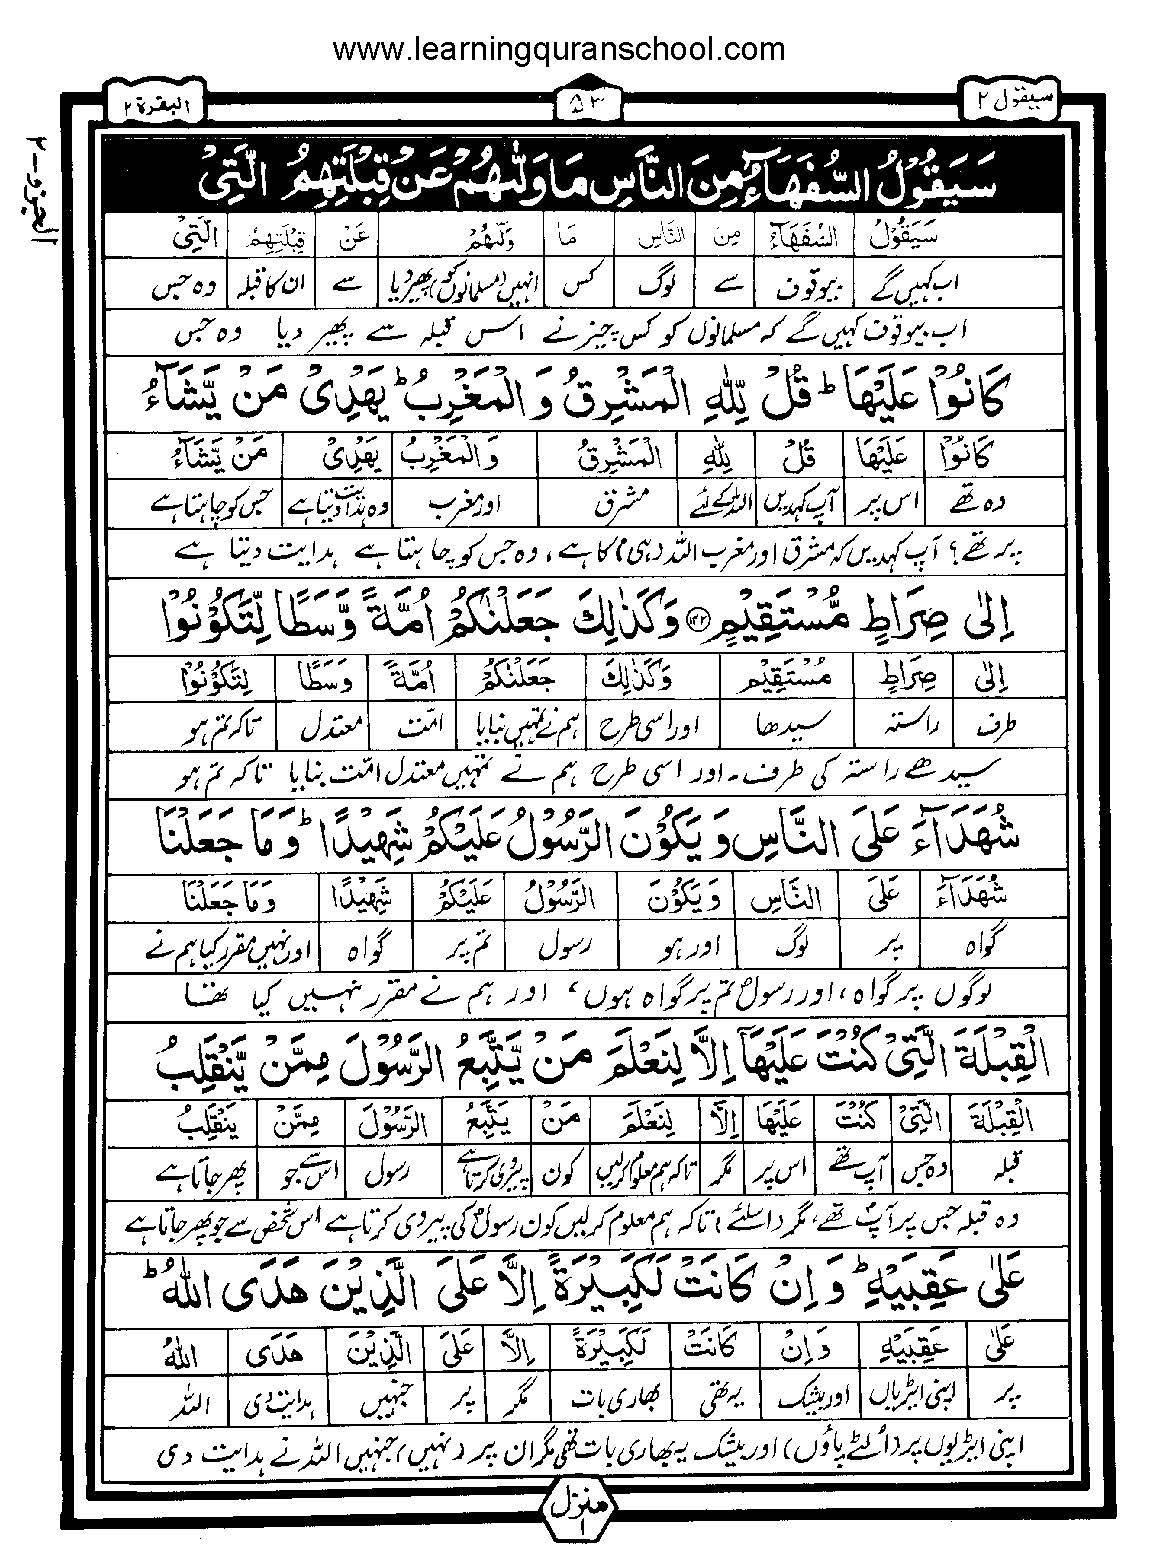 www.learningquranschool.com
سیقول ۲
۵۳
البقرة ۲
الجزو-۲
سَيَقُوْلُ السُّفَهَآءُ مِنَ النَّاسِ مَا وَلّٰىهُمْ عَنْ قِبْلَتِهِمُ الَّتِیْ
سَيَقُوْلُ السُّفَهَآءُ مِنَ النَّاسِ مَا وَلّٰىهُمْ عَنْ قِبْلَتِهِمُ الَّتِیْ
اب کہیں گے بیوقوف سے لوگ کس انہیں (مسلمانوں کو) پھیر دیا سے ان کا قبلہ وہ جس
اب بیوقوف کہیں گے کہ مسلمانوں کو کس چیز نے اس قبلہ سے پھیر دیا وہ جس
كَانُوْا عَلَيْهَا ؕ قُلْ لِّلّٰهِ الْمَشْرِقُ وَ الْمَغْرِبُ ؕ يَهْدِیْ مَنْ يَّشَآءُ
كَانُوْا عَلَيْهَا قُلْ لِلّٰهِ الْمَشْرِقُ وَالْمَغْرِبُ يَهْدِیْ مَنْ يَّشَآءُ
وہ تھے اس پر آپ کہدیں اللہ کے لئے مشرق اور مغرب وہ ہدایت دیتا ہے جس کو چاہتا ہے
پر تھے؟ آپ کہدیں کہ مشرق اور مغرب اللہ (ہی) کا ہے، وہ جس کو چاہتا ہے ہدایت دیتا ہے
اِلٰى صِرَاطٍ مُّسْتَقِيْمٍ ۝۱۴۲ وَكَذٰلِكَ جَعَلْنٰكُمْ اُمَّةً وَّسَطًا لِّتَكُوْنُوْا
اِلٰى صِرَاطٍ مُسْتَقِيْمٍ وَكَذٰلِكَ جَعَلْنٰكُمْ اُمَّةً وَسَطًا لِتَكُوْنُوْا
طرف راستہ سیدھا اور اسی طرح ہم نے تمہیں بنایا امّت معتدل تاکہ تم ہو
سیدھے راستہ کی طرف۔ اور اسی طرح ہم نے تمہیں معتدل امّت بنایا تاکہ تم ہو
شُهَدَآءَ عَلَى النَّاسِ وَ يَكُوْنَ الرَّسُوْلُ عَلَيْكُمْ شَهِيْدًا ؕ وَ مَا جَعَلْنَا
شُهَدَآءَ عَلَى النَّاسِ وَ يَكُوْنَ الرَّسُوْلُ عَلَيْكُمْ شَهِيْدًا وَمَا جَعَلْنَا
گواہ پر لوگ اور ہو رسول تم پر گواہ اور نہیں مقرر کیا ہم نے
لوگوں پر گواہ، اور رسول تم پر گواہ ہوں، اور ہم نے مقرر نہیں کیا تھا
الْقِبْلَةَ الَّتِیْ كُنْتَ عَلَيْهَآ اِلَّا لِنَعْلَمَ مَنْ يَّتَّبِعُ الرَّسُوْلَ مِمَّنْ يَّنْقَلِبُ
الْقِبْلَةَ الَّتِیْ كُنْتَ عَلَيْهَآ اِلَّا لِنَعْلَمَ مَنْ يَتَّبِعُ الرَّسُوْلَ مِمَّنْ يَنْقَلِبُ
قبلہ وہ جس آپ تھے اس پر مگر تاکہ ہم معلوم کرلیں کون پیروی کرتا ہے رسول اس سے جو پھر جاتا ہے
وہ قبلہ جس پر آپ تھے، مگر (اسلئے) تاکہ ہم معلوم کرلیں کون رسول کی پیروی کرتا ہے اس شخص سے جو پھر جاتا ہے
عَلٰى عَقِبَيْهِ ؕ وَ اِنْ كَانَتْ لَكَبِيْرَةً اِلَّا عَلَى الَّذِيْنَ هَدَى اللّٰهُ ؕ
عَلٰى عَقِبَيْهِ وَ اِنْ كَانَتْ لَكَبِيْرَةً اِلَّا عَلَى الَّذِيْنَ هَدَى اللّٰهُ
پر اپنی ایڑیاں اور بیشک یہ تھی بھاری بات مگر پر جنہیں ہدایت دی اللہ
اپنی ایڑیوں پر (الٹے پاؤں) اور بیشک یہ بھاری بات تھی مگر ان پر (نہیں) جنہیں اللہ نے ہدایت دی
منزل ۱